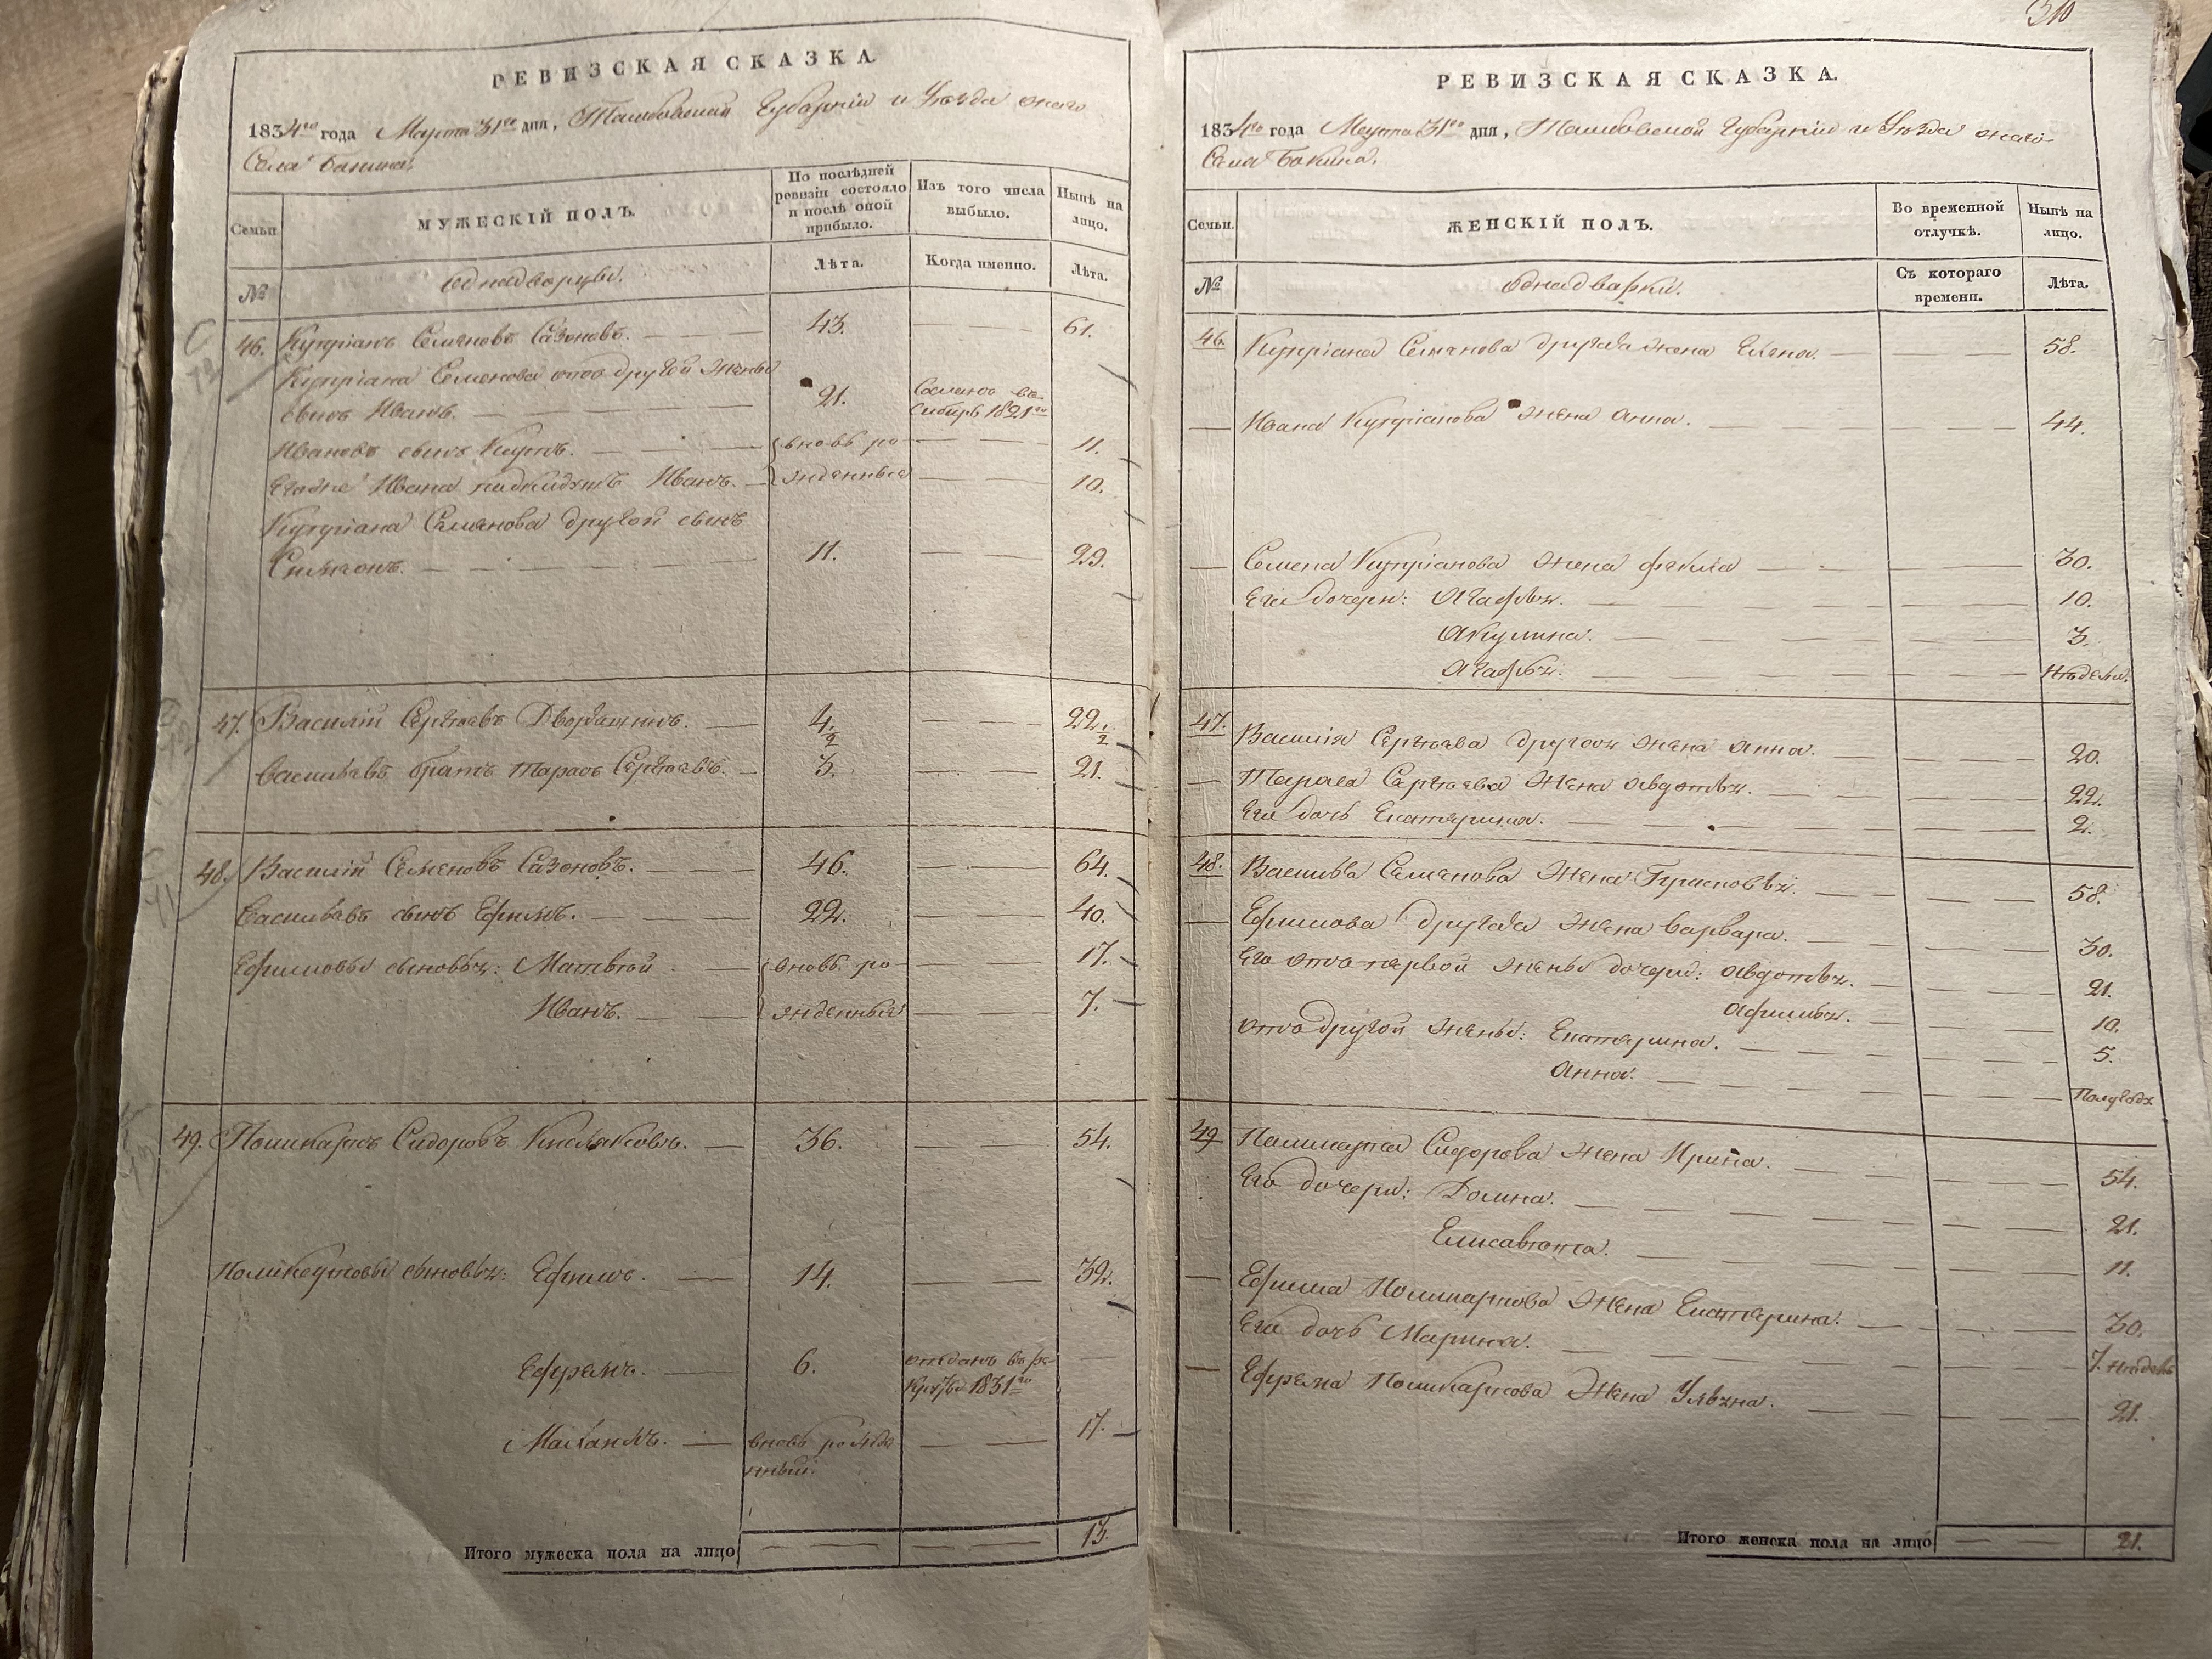 РЕВИЗСКАЯ СКАЗКА.
1834го года Марта 31го дня, Тамбовской Губерніи и Уѣзда онаго
Села Бокина.
Семьи.
МУЖЕСКІЙ ПОЛЪ.
По послѣдней
ревизіи состояло
и послѣ оной
прибыло.
Изъ того числа
выбыло.
Нынѣ на
лицо.
№
Однадворцы.
Лѣта.
Когда именно.
Лѣта.
46. Купріянъ Семеновъ Сазоновъ. 43. 61.
Купріяна Семенова отъ другой жены
сынъ Иванъ. 21. Сосланъ въ
Сибирь 1821го
Ивановъ сынъ вновь ро- 11.
Егоже Ивана подкидышъ Иванъ. жденныя 10.
Купріяна Семенова другой сынъ
Симіонъ. 11. 29.
47. Василій Сергѣевъ 4 1/2 22 1/2
Васильевъ братъ Тарасъ Сергѣевъ. 3. 21.
48. Василій Семеновъ Сазоновъ. 46. 64.
Васильевъ сынъ Ефимъ. 22. 40.
Ефимовы сыновья: Матвѣй вновь ро- 17.
Иванъ. жденныя 7.
49. Поликарпъ Сидоровъ Кисляковъ. 36. 54.
Поликарповы сыновья: Ефимъ. 14. 32.
Ефремъ. 6. отданъ въ ре-
круты 1831го
вновь рожде 17.
нный.
Итого мужеска пола на лицо 13.
310
РЕВИЗСКАЯ СКАЗКА.
1834го года Марта 31го дня, Тамбовской Губерніи и Уѣзда онаго
Села Бокина.
Семьи.
ЖЕНСКІЙ ПОЛЪ.
Во временной
отлучкѣ.
Нынѣ на
лицо.
№
Однадварки.
Съ котораго
времени.
Лѣта.
46. Купріяна Семенова другая жена Елена. 58.
Ивана Купріянова жена Анна. 44.
Семена Купріянова жена Фекла 30.
Его дочери: Агафья. 10.
Акулина. 3.
Агафья. Недель.
47. Василія Сергѣева другая жена Анна. 20.
Тараса Сергѣева жена Авдотья. 22.
Его дочь Екатерина. 2.
48. Василья Семенова жена Прасковья. 58.
Ефимова другая жена Варвара. 30.
Его отъ первой жены дочери: Авдотья. 21.
Афимья. 10.
отъ другой жены: Екатерина. 5.
Анна. Полугода
49 Поликарпа Сидорова жена Ирина. 54.
Его дочери: Домна. 21.
Елисавета. 11.
Ефима Поликарпова жена Екатерина. 30.
Его дочь Марина. 7. недель
Ефрема Поликарпова жена Ульяна. 21.
Итого женска пола на лицо 21.